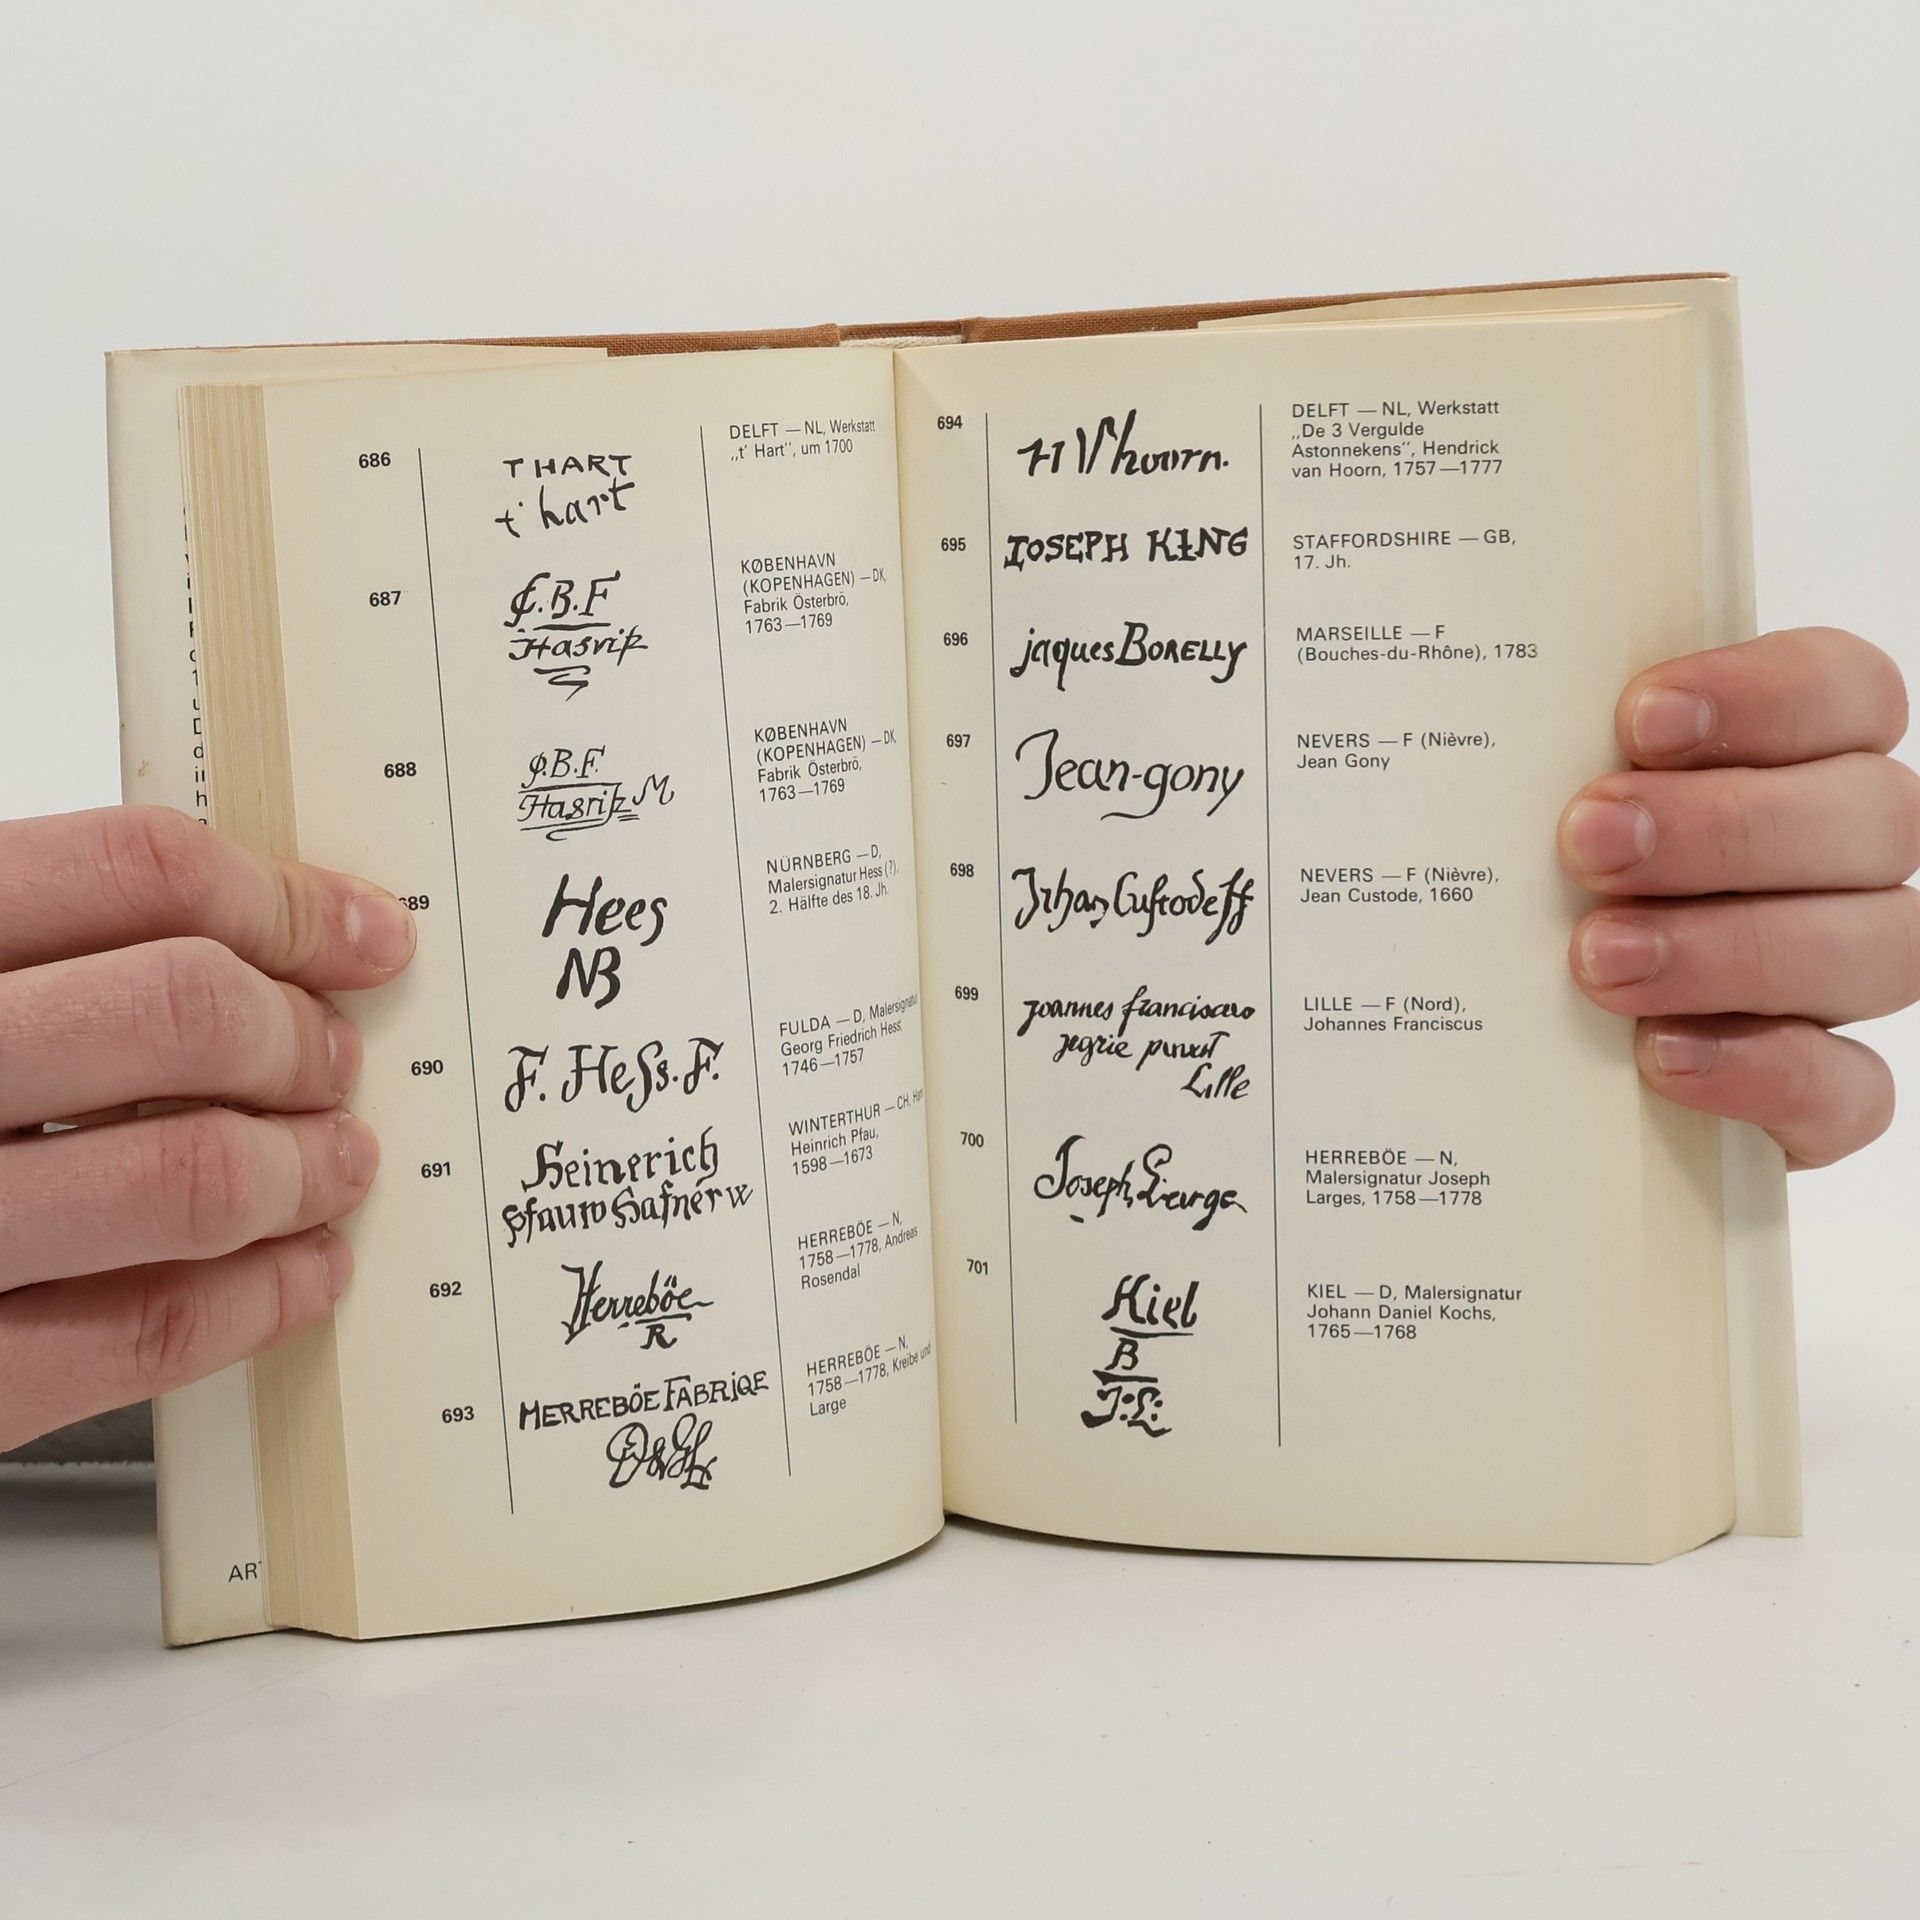 686
T HART
t' hart
DELFT — NL, Werkstatt
„t' Hart“, um 1700
687
C.B.F
Hasritz
KØBENHAVN
(KOPENHAGEN) — DK,
Fabrik Österbrö,
1763—1769
688
P.B.F.
Hasritz M
KØBENHAVN
(KOPENHAGEN) — DK,
Fabrik Österbrö,
1763—1769
689
Hees
NB
NÜRNBERG — D,
Malersignatur Hess (?),
2. Hälfte des 18. Jh.
690
F. Heſs. F.
FULDA — D, Malersignatur
Georg Friedrich Hess,
1746—1757
691
Heinerich
Pfauw Hafner w
WINTERTHUR — CH, Hans
Heinrich Pfau,
1598—1673
692
Herreböe
R
HERREBÖE — N,
1758—1778, Andreas
Rosendal
693
HERREBÖE FABRiQE
HERREBÖE — N,
1758—1778, Kreibe und
Large
ART
694
H V hoorn.
DELFT — NL, Werkstatt
„De 3 Vergulde
Astonnekens“, Hendrick
van Hoorn, 1757—1777
695
IOSEPH KING
STAFFORDSHIRE — GB,
17. Jh.
696
jaques BORELLY
MARSEILLE — F
(Bouches-du-Rhône), 1783
697
Jean-gony
NEVERS — F (Nièvre),
Jean Gony
698
Custodeff
NEVERS — F (Nièvre),
Jean Custode, 1660
699
joannes
Lille
LILLE — F (Nord),
Johannes Franciscus
700
Joseph Large
HERREBÖE — N,
Malersignatur Joseph
Larges, 1758—1778
701
Kiel
B
J:L:
KIEL — D, Malersignatur
Johann Daniel Kochs,
1765—1768